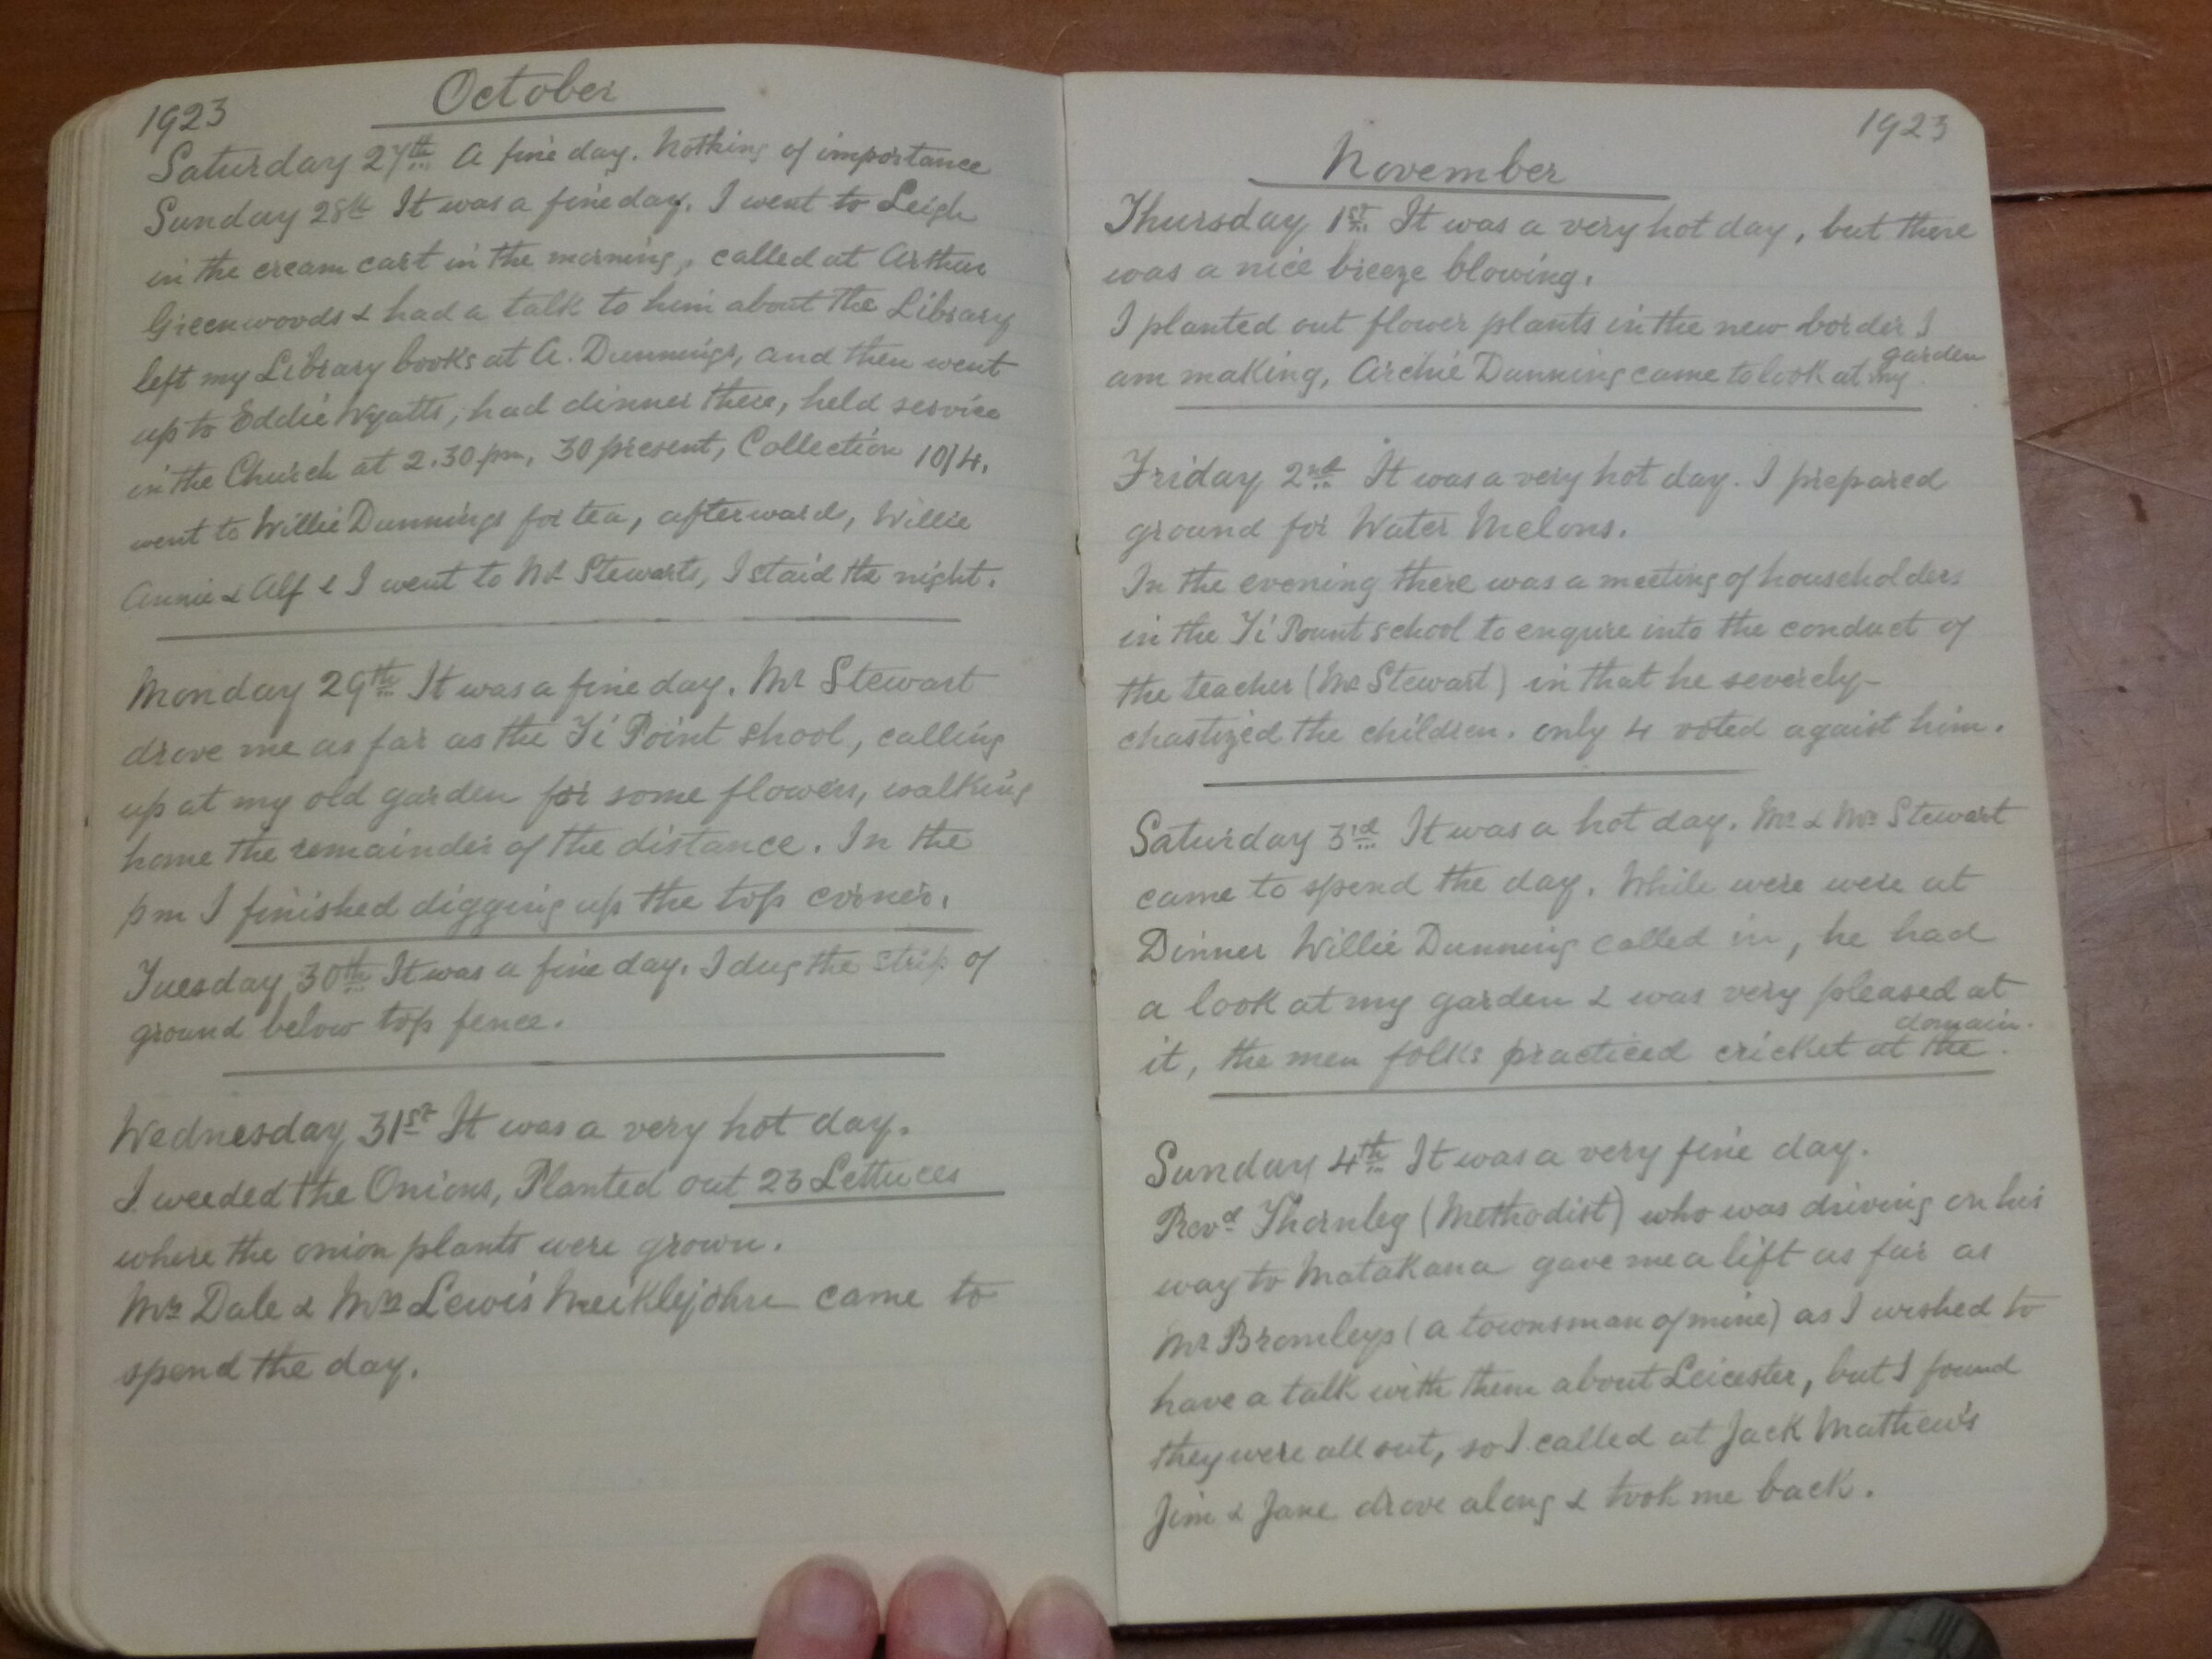 1923
October
Saturday 27th A fine day. Nothing of importance
Sunday 28th It was a fine day. I went to Leigh
in the cream cart in the morning, called at Arthur
Greenwoods & had a talk to him about the Library
left my Library books at A. Dunnings, and then went
up to Eddie Wyatts, had dinner there, held service
in the Church at 2.30 pm, 30 present, Collection 10/4.
went to Willie Dunnings for tea, afterward, Willie
Annie & Alf & I went to Mr Stewarts, I staid the night.
Monday 29th It was a fine day. Mr Stewart
drove me as far as the Ti Point shool, calling
up at my old garden for some flowers, walking
home the remainder of the distance. In the
pm I finished digging up the top corner.
Tuesday 30th It was a fine day. I dug the strip of
ground below top fence.
Wednesday 31st It was a very hot day.
I weeded the Onions, Planted out 23 Lettuces
where the onion plants were grown.
Mrs Dale & Mrs Lewis Meiklejohn came to
spend the day.
1923
November
Thursday 1st It was a very hot day, but there
was a nice breeze blowing.
I planted out flower plants in the new border I
am making, Archie Dunning came to look at my garden
Friday 2nd It was a very hot day. I prepared
ground for Water Melons.
In the evening there was a meeting of householders
in the Ti Pount school to enqure into the conduct of
the teacher (Mr Stewart) in that he severely-
chastized the children. only 4 voted agaist him.
Saturday 3rd It was a hot day. Mr & Mrs Stewart
came to spend the day. While were were at
Dinner Willie Dunning called in, he had
a look at my garden & was very pleased at
it, the men folks practiced cricket at the domain.
Sunday 4th It was a very fine day.
Revd Thornley (Methodist) who was driving on his
way to Matakana gave me a lift as far as
Mr Bromleys (a townsman of mine) as I wished to
have a talk with them about Leicester, but I found
they were all out, so I called at Jack Mathew's
Jim & Jane drove along & took me back.